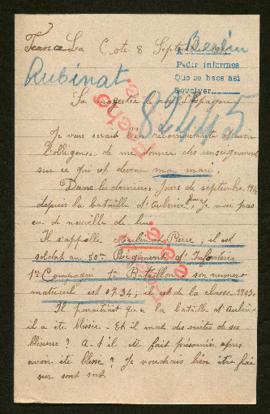 France La Côte 8 Septembre
Berlin
Pedir informes
Que se hace así
Devolver
Rubinat
Sa majesté le roi d'Espagne
82445
Je vous serait bien reconnaissante
de me donner des renseignements
sur ce qu'est devenu mon mari
Dans les derniers jours de septembre 1914
depuis la bataille d'Aubérive, je n'ai pas
eu de nouvelle de lui
Il s'appelle Rubinat Pierre, il est
soldat au Régiment d'Infanterie
1re Compagnie 1er Bataillon son numero
matricule est 0734, il est de la classe 1903.
Il paraîtrait qu'a la bataille d'Aubérive
il a été blessé. Est-il mort des suites de ses
blessures? A-t-il été fait prisonnier après
avoir été blessé? Je voudrais bien être fixée
sur son sort.